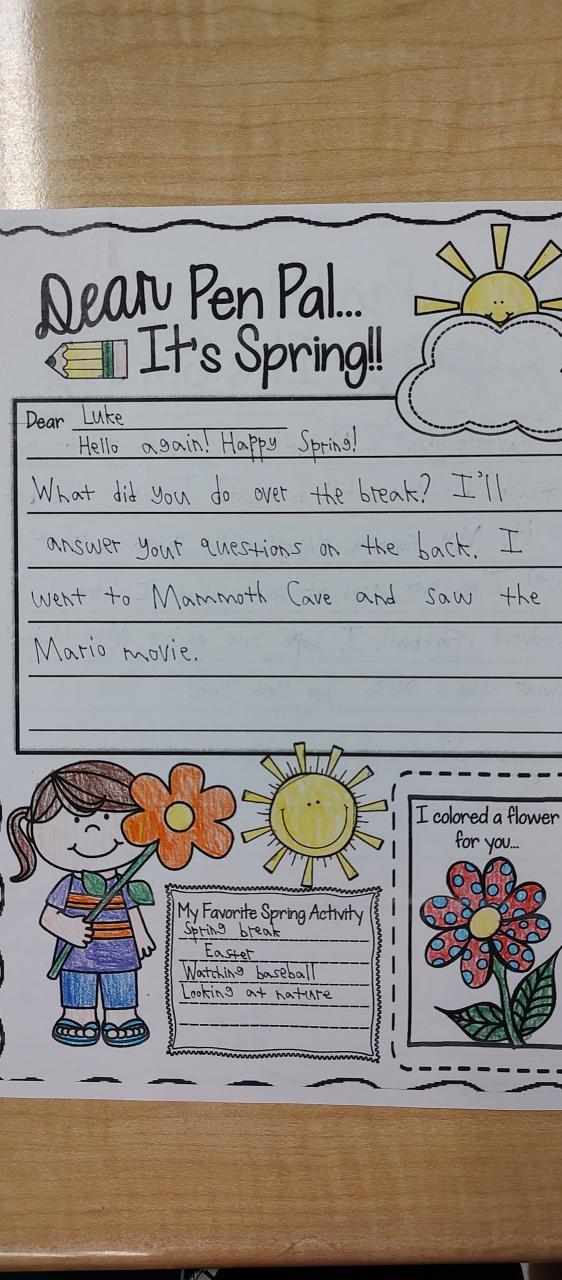 Dear Pen Pal...
It's Spring!!
Dear Luke
Hello again! Happy Spring!
What did you do over the break? I'll
answer your questions on the back. I
went to Mammoth Cave and saw the
Mario movie.
My Favorite Spring Activity
Spring break
Easter
Watching baseball
Looking at nature
I colored a flower
for you...